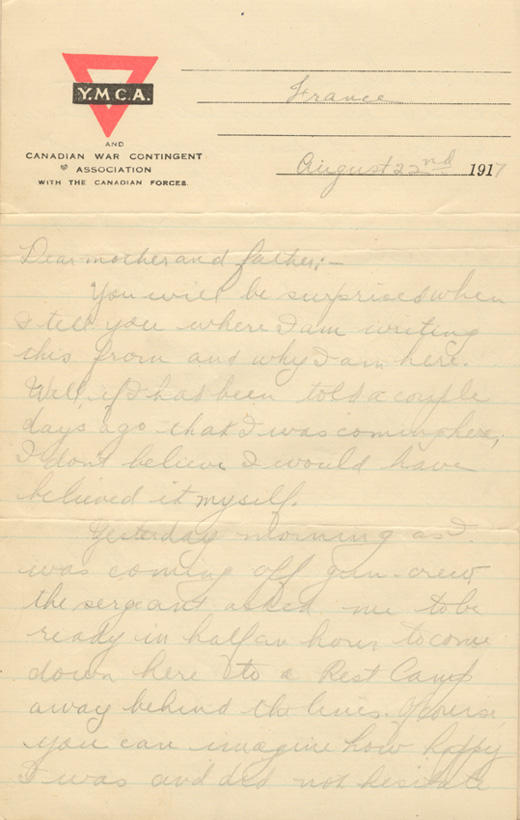 Y.M.C.A.
AND
CANADIAN WAR CONTINGENT
ASSOCIATION
WITH THE CANADIAN FORCES.
France
August 22nd 1917
Dear mother and father;-
You will be surprised when
I tell you where I am writing
this from and why I am here.
Well, if I had been told a couple
days ago that I was coming here,
I don't believe I would have
believed it myself.
Yesterday morning as I
was coming off gun-crew
the sergeant asked me to be
ready in half an hour to come
down here to a Rest Camp
away behind the lines. Of course,
you can imagine how happy
I was and did not hesitate